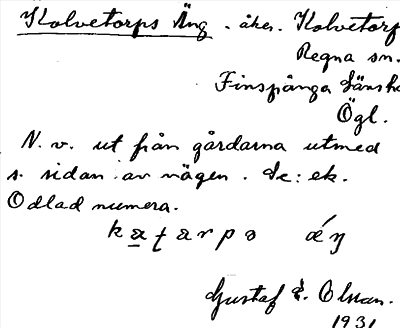 Kolvetorps Äng. åker. Kolvetorp
Regna sn.
Finspånga länsh
Ögl.
N. v. ut från gårdarna utmed
s. sidan av vägen. Se: ek.
Odlad numera.
Gustaf E. Olsson.
1931